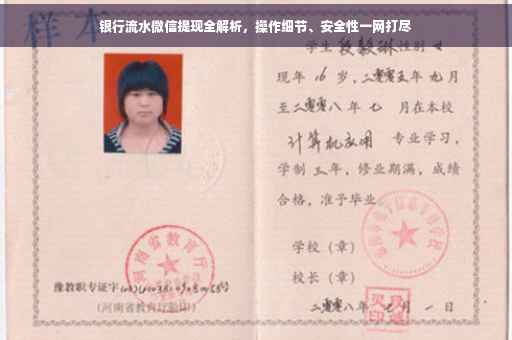 银行流水微信提现全解析，操作细节、安全性一网打尽
样本
学生段毅琳性别女
现年16岁，二零零五年九月
至二零零八年七月在本校
计算机应用 专业学习，
学制三年，修业期满，成绩
合格，准予毕业。
学校（章）
校长（章）
二零零八年七月一日
河南省教育厅
豫教职专证字
（河南省教育厅验印）